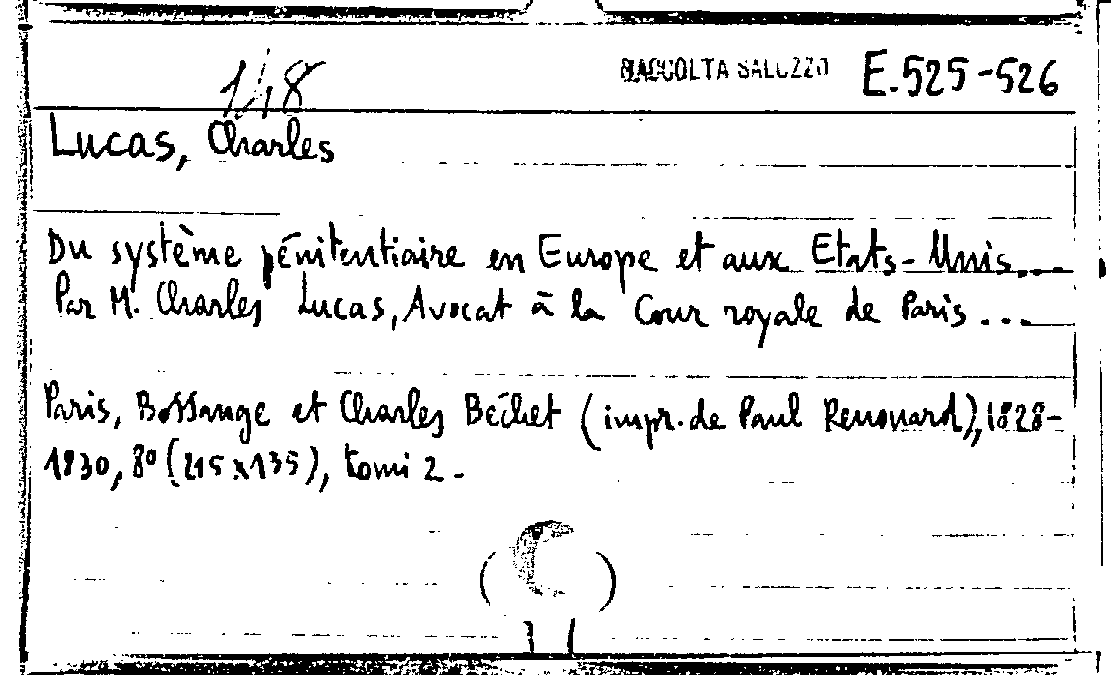 148 RACCOLTA SALUZZO E.525-526
Lucas, Charles
Du système pénitentiaire en Europe et aux Etats-Unis...
Par M. Charles Lucas, Avocat à la Cour royale de Paris ...
Paris, Bossange et Charles Béchet (impr. de Paul Renouard), 1828-
1830, 8° (215x135), tomi 2.